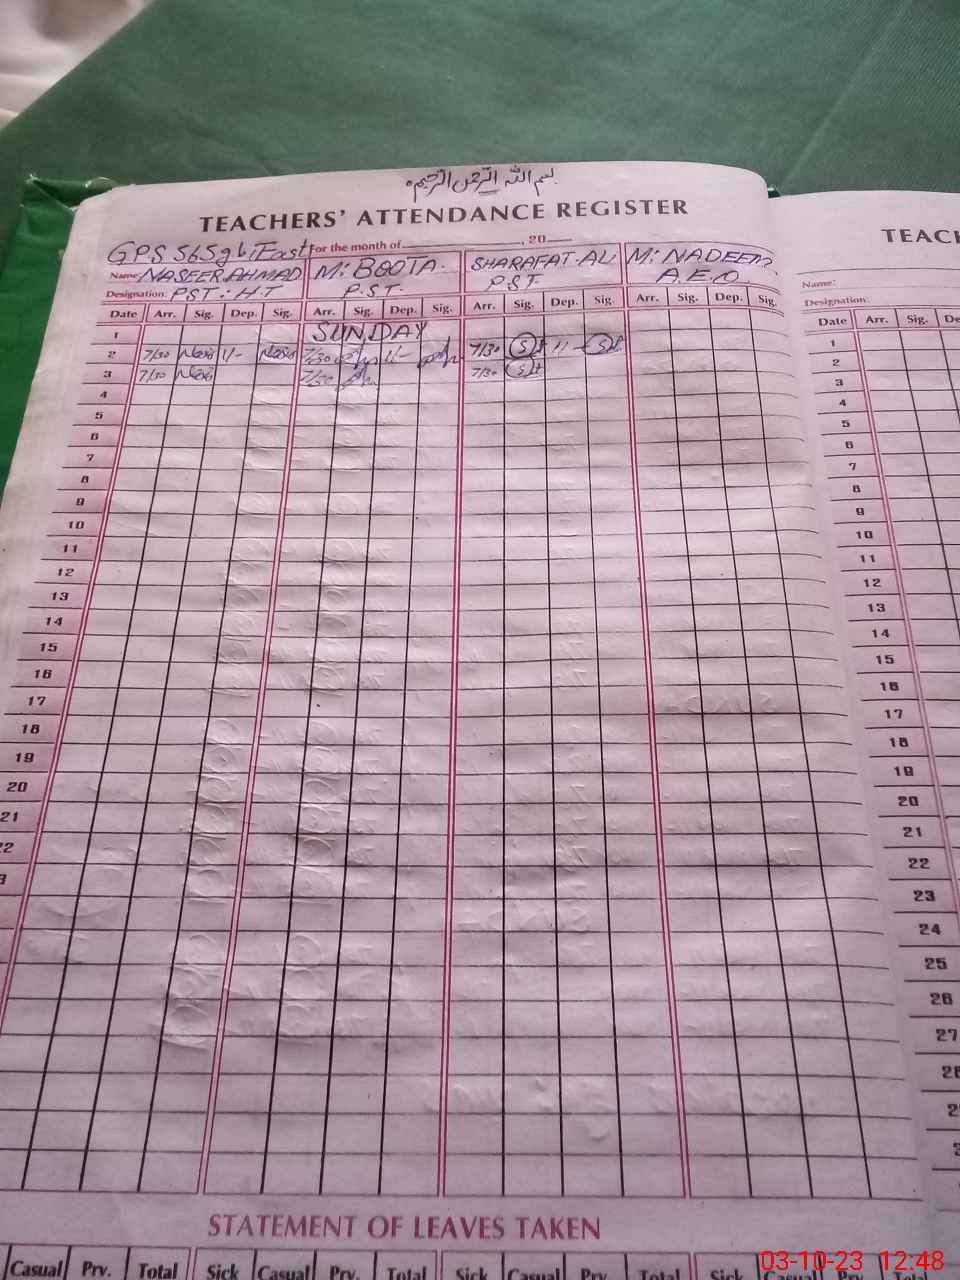 بسم اللہ الرحمن الرحیم
TEACHERS' ATTENDANCE REGISTER
GPS 565 gb East For the month of , 20
Name: NASEER AHMAD M: BOOTA. SHARAFAT ALI M: NADEEM
Designation: PST: H.T P.S.T. P.S.T. A.E.O
Date Arr. Sig. Dep. Sig. Arr. Sig. Dep. Sig. Arr. Sig. Dep. Sig. Arr. Sig. Dep. Sig.
1 SUNDAY
2 7/30 1/- 7/30 1/- 7/30 1/
3 7/30 7/30 7/30
4
5
6
7
8
9
10
11
12
13
14
15
16
17
18
19
20
21
22
3
STATEMENT OF LEAVES TAKEN
Casual Prv. Total Sick Casual Prv. Total Sick Casual Prv. Total Sick Casual Prv. Total
TEACH
Name:
Designation:
Date Arr. Sig. De
1
2
3
4
5
6
7
8
9
10
11
12
13
14
15
16
17
18
19
20
21
22
23
24
25
26
27
03-10-23 12:48